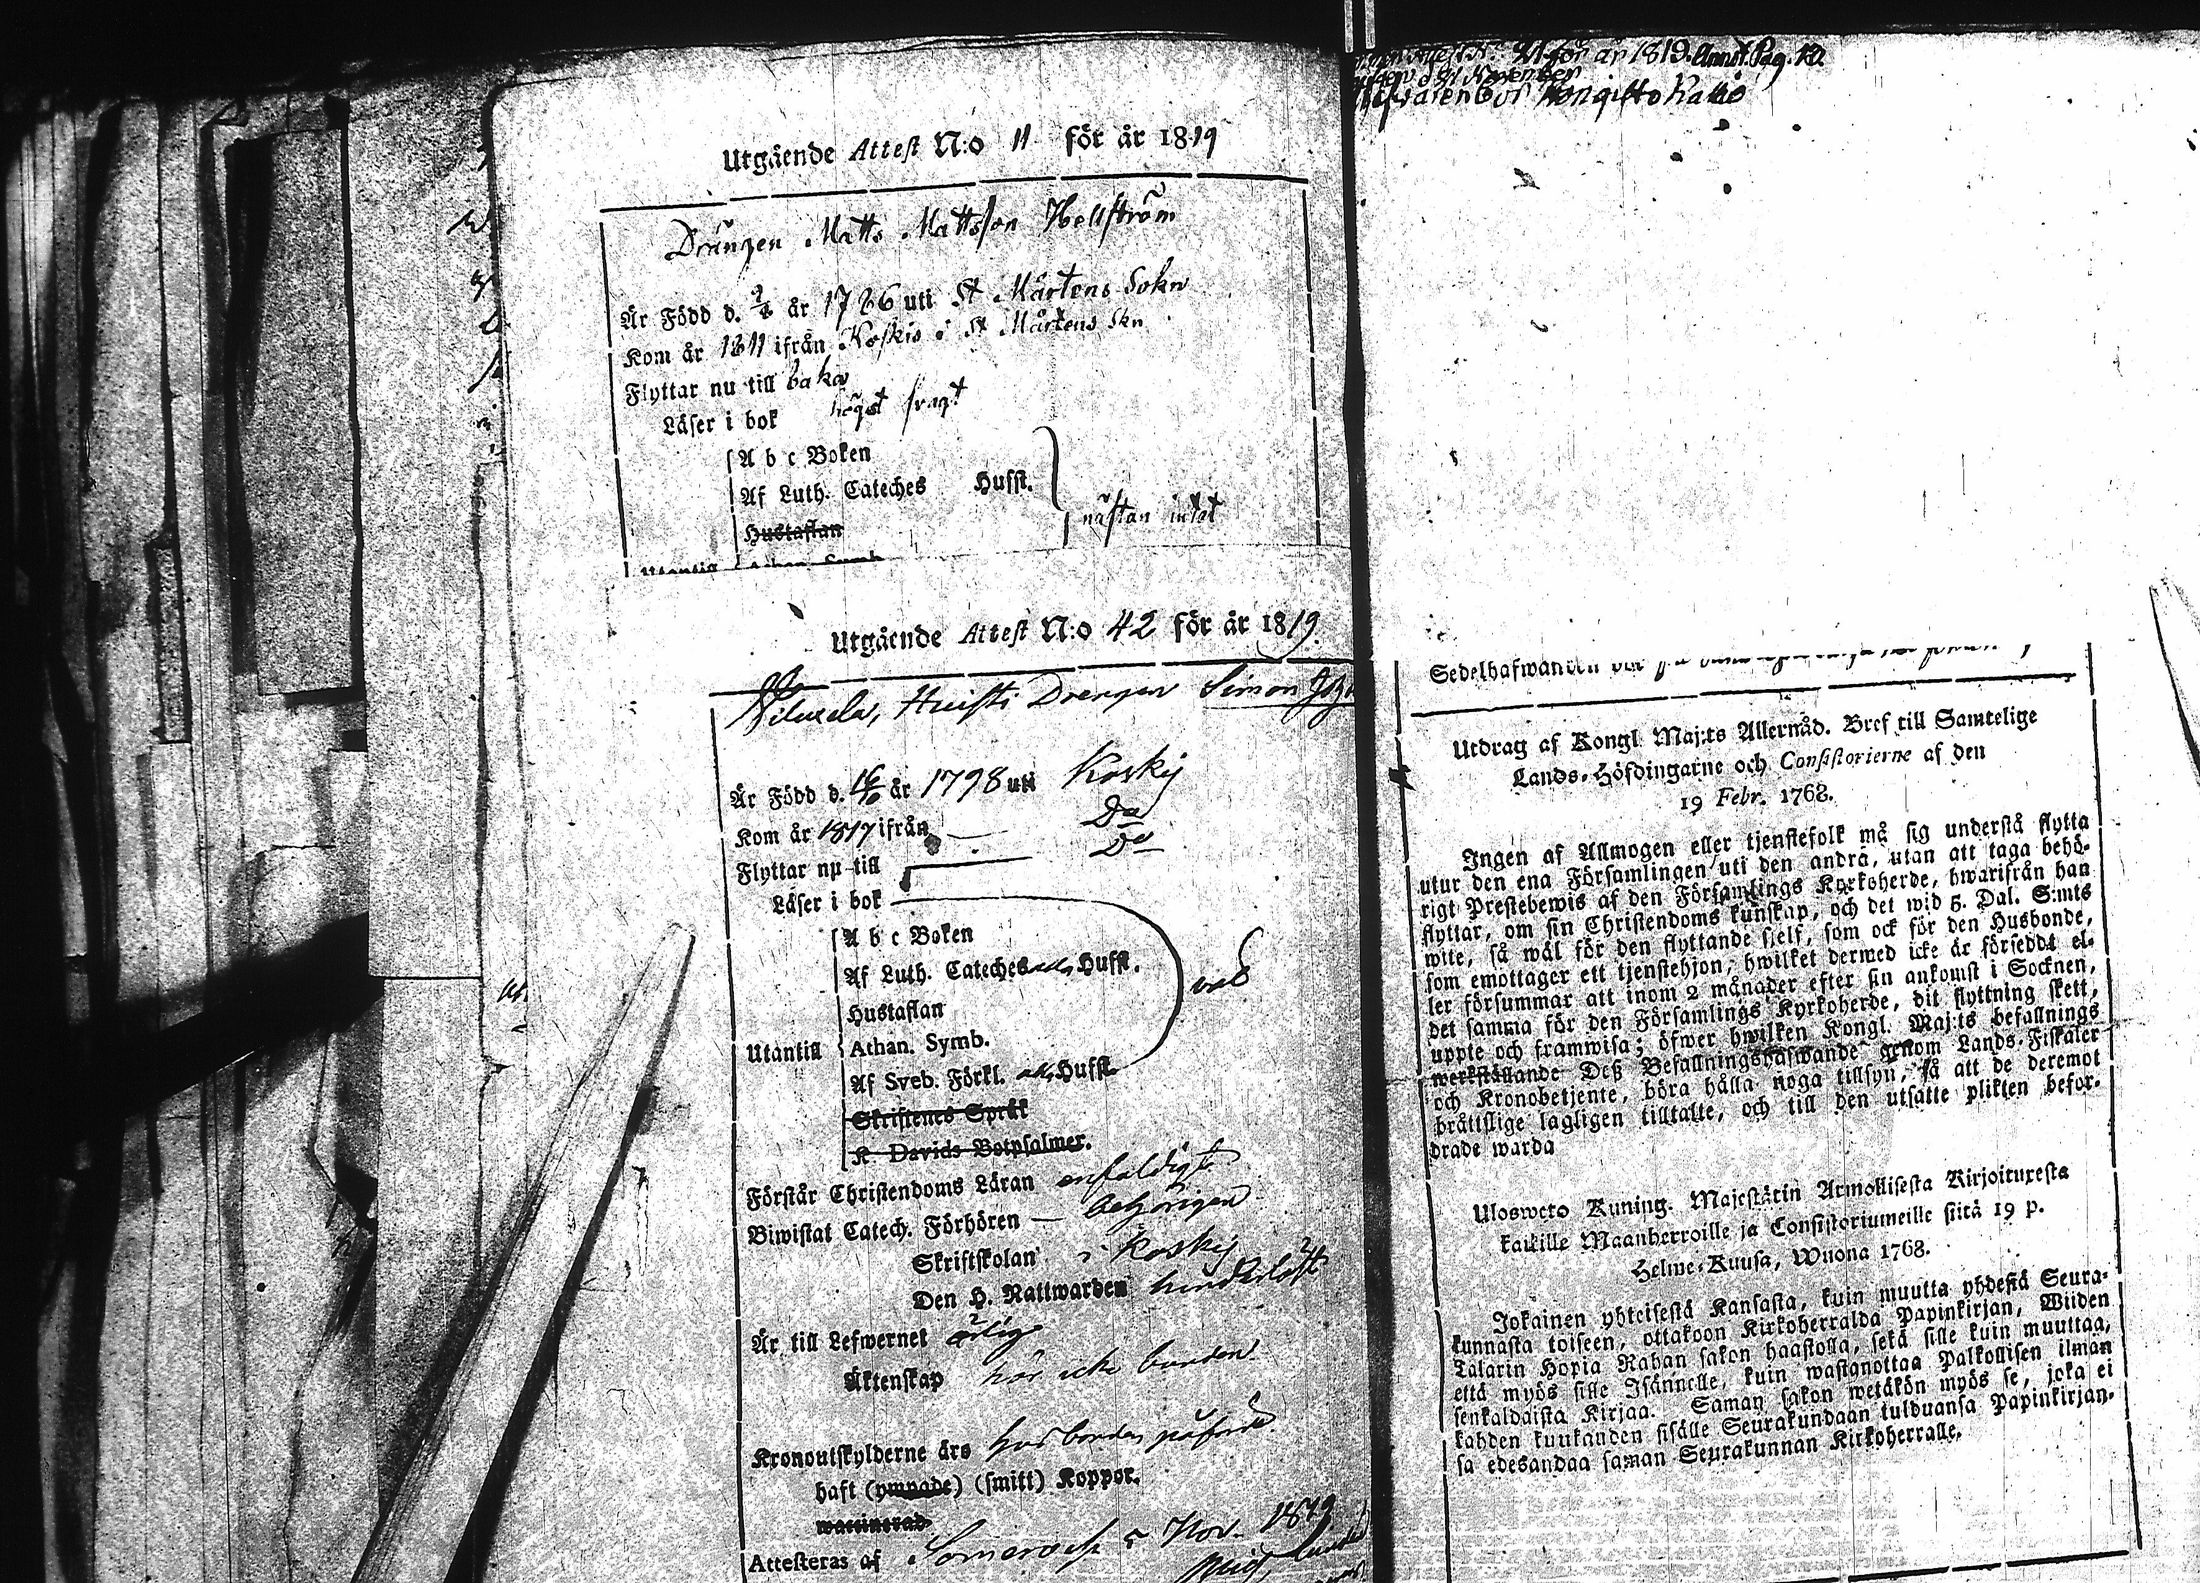 Utgående Attest N:o 11 för år 1819
Drängen Matts Mattsson Hellström
Är Född d. år 1786 uti St Mårtens Sokn
Kom år 1811 ifrån Koskis i St Mårtens Skn
Flyttar nu till baka
Läser i bok högst svagt
A b c Boken
Af Luth. Cateches Hufst.
Hustaflan
nästan intet
Utgående Attest N:o 42 för år 1819.
Huisti Drengen Simon
Är Född d. år 1798 uti Koskij
Kom år 1817 ifrån Do
Flyttar nu till Do
Läser i bok
A b c Boken
Af Luth. Cateches Hufst.
Hustaflan
Utantill Athan. Symb.
Af Sveb. Förkl. Hufst.
Skriftenes Språk
K Davids Botpsalmer.
Förstår Christendoms Läran enfaldigt
Biwistat Catech. Förhören behörigen
Skriftskolan i Koskij
Den H. Nattwarden
Är till Lefwernet ärlig
Äktenskap här icke bunden
Kronoutskylderne äro
haft (ympade) (smitt) Koppor.
Attesteras af Somero 5 Nov. 1819
21 för år 1819. Pag. 10.
November
Sedelhafwanden
Utdrag af Kongl. Maj:ts Allernåd. Bref till Samtelige
Lands-Höfdingarne och Consistorierne af den
19 Febr. 1768.
Ingen af Allmogen eller tjenstefolk må sig understå flytta
utur den ena Församlingen uti den andra, utan att taga behö-
rigt Prestebewis af den Församlings Kyrkoherde, hwarifrån han
flyttar, om sin Christendoms kunskap, och det wid 5. Dal. S:mts
wite, så wäl för den flyttande sjelf, som ock för den Husbonde,
som emottager ett tjenstehjon, hwilket dermed icke är förseddt el-
ler försummar att inom 2 månader efter sin ankomst i Socknen,
det samma för den Församlings Kyrkoherde, dit flyttning skett,
uppte och framwisa; öfwer hwilken Kongl. Maj:ts befallnings
werkställande Deß Befallningshafwande genom Lands-Fiskaler
och Kronobetjente, böra hålla noga tillsyn, så att de deremot
bråttslige lagligen tilltalte, och till den utsatte plikten befor-
drade warda
Ulosweto Kuning. Majestätin Armollisesta Kirjoituxesta
kaikille Maanherroille ja Consistoriumeille siitä 19 p.
Helme-Kuusa, Wuona 1768.
Jokainen yhteisestä Kansasta, kuin muutta yhdestä Seura-
kunnasta toiseen, ottakoon Kirkoherralda Papinkirjan, Wiiden
Talarin Hopia Rahan sakon haastolla, sekä sille kuin muuttaa,
että myös sille Isännelle, kuin wastanottaa Palkollisen ilman
senkaldaista Kirjaa. Saman sakon wetäkön myös se, joka ei
kahden kuukauden sisälle Seurakundaan tulduansa Papinkirjan-
sa edesandaa saman Seurakunnan Kirkoherralle.